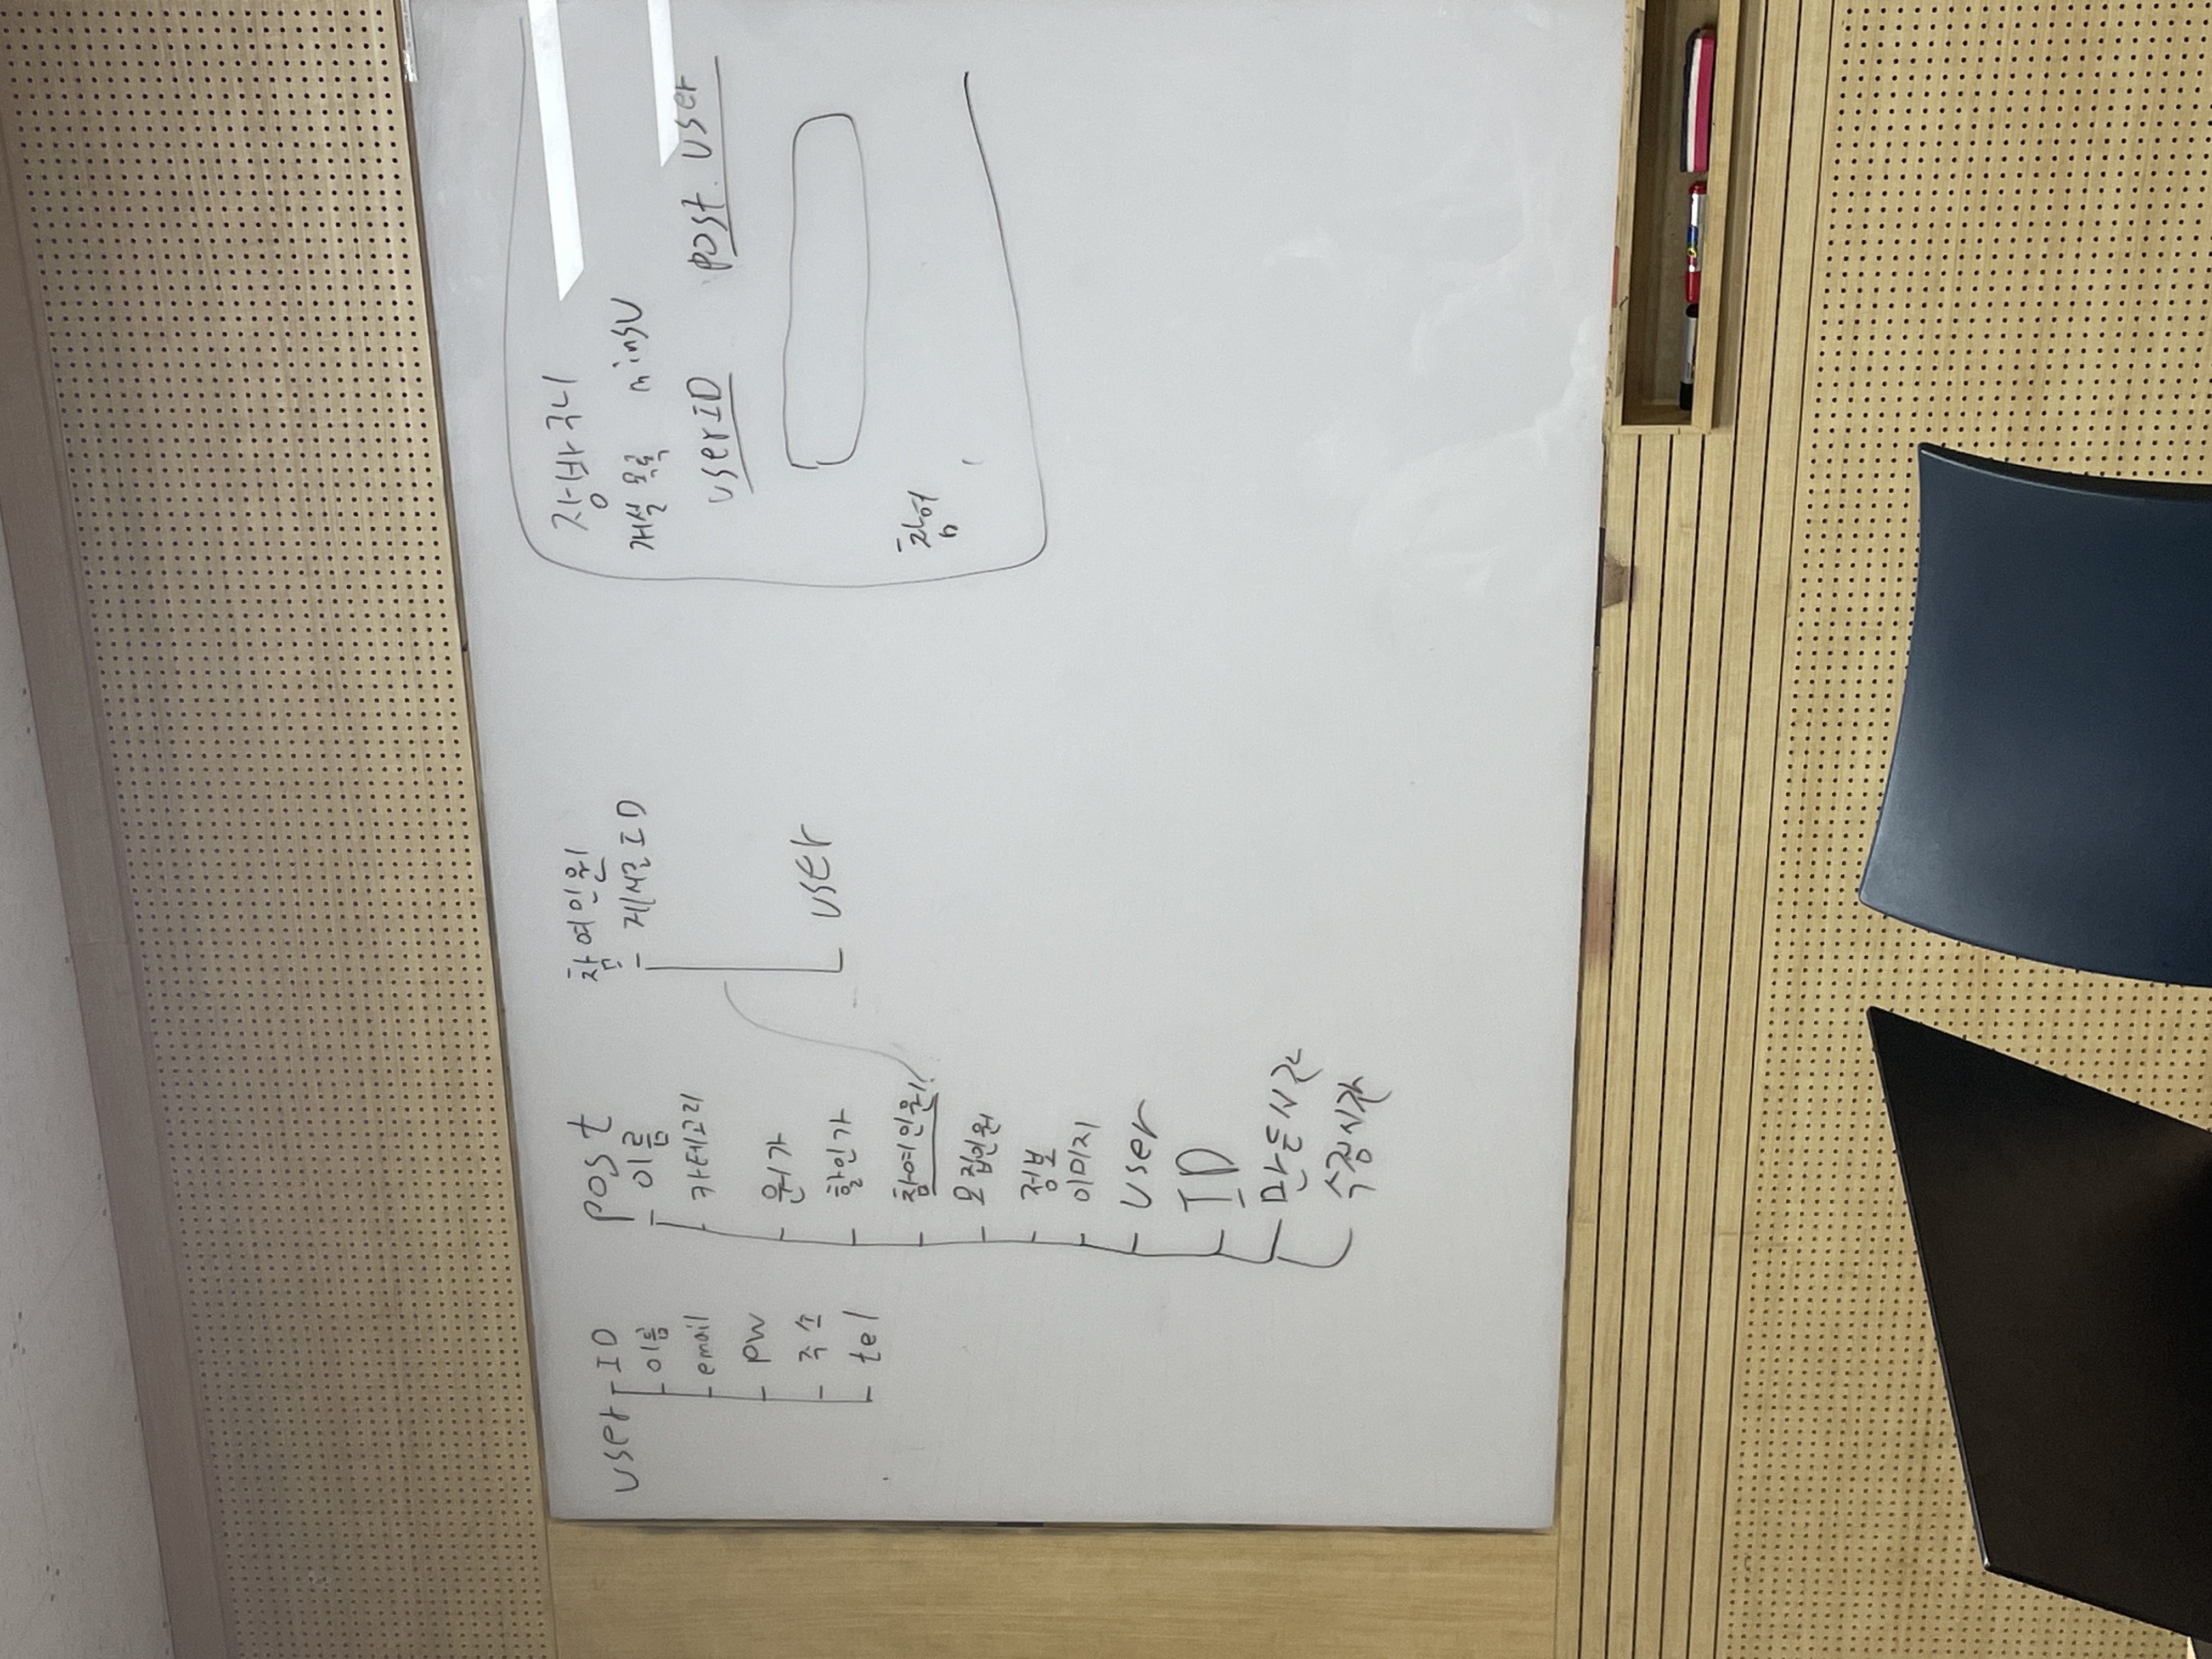 user ID
이름
email
PW
주소
tel
post
이름
카테고리
원가
할인가
참여인원
모집인원
정보
이미지
user
ID
만든시간
수정시간
참여인원
게시글ID
user
장바구니
개설 목록 minsu
userID post.user
참여